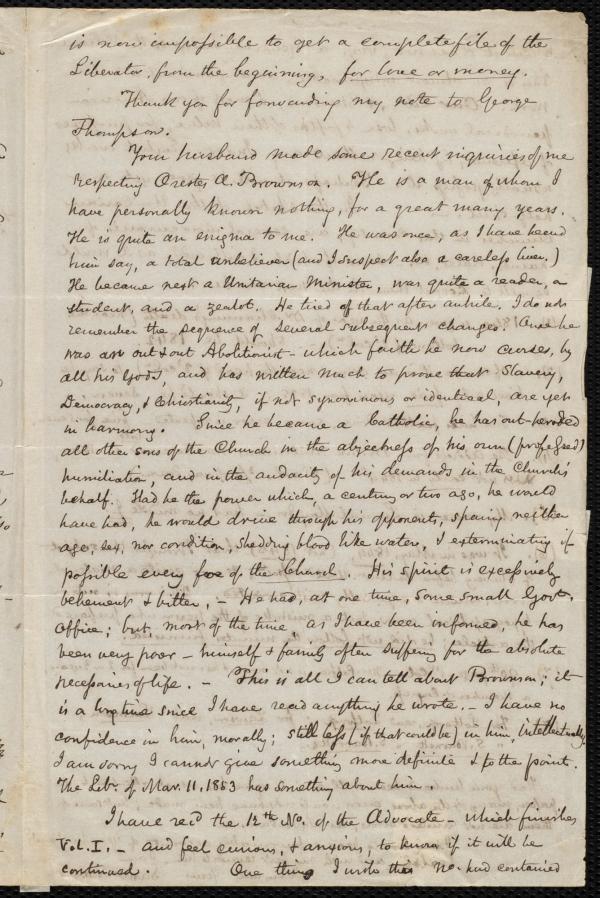 is now impossible to get a complete file of the
Liberator, from the beginning, for love or money.
Thank you for forwarding my note to George
Thompson.
Your husband made some recent inquiries of me
respecting Orestes A. Brownson. He is a man of whom I
have personally known nothing, for a great many years.
He is quite an enigma to me. He was once, as I have heard
him say, a total unbeliever (and I suspect also a careless liver.)
He became next a Unitarian Minister, was quite a reader, a
student, and a zealot. He tired of that after awhile. I do not
remember the sequence of several subsequent changes. Once he
was an out & out Abolitionist – which faith he now curses, by
all his Gods, and has written much to prove that Slavery,
Democracy, & Christianity, if not synonimous or identical, are yet
in harmony. Since he became a Catholic, he has out-heroded
all other sons of the Church in the abjectness of his own (professed)
humiliation, and in the audacity of his demands in the Church's
behalf. Had he the power which, a century or two ago, he would
have had, he would drive through his opponents, sparing neither
age, sex, nor condition, shedding blood like water, & exterminating if
possible every foe of the Church. His spirit is excessively
vehement & bitter, – He had, at one time, some small Govt.
office; but, most of the time, as I have been informed, he has
been very poor – himself & family often suffering for the absolute
necessaries of life. – This is all I can tell about Brownson; it
is a long time since I have read anything he wrote. – I have no
confidence in him, morally; still less (if that could be) in him, intellectually.
I am sorry I cannot give something more definite & to the point.
The Libr. of Mar. 11, 1853 has something about him.
I have rec'd the 12th No. of the Advocate – which finishes
Vol. I. – and feel curious, & anxious, to know if it will be
continued. One thing I wish this No. had contained